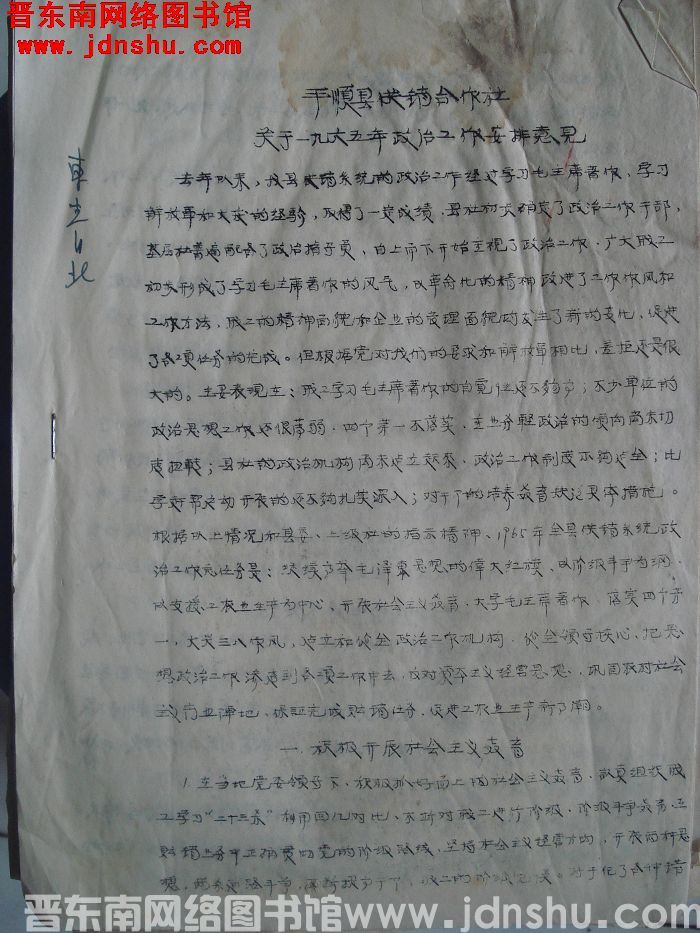 晋东南网络图书馆
www.jdnshu.com
平顺县供销合作社
关于一九六五年政治工作安排意见
去年以来，我县供销系统的政治工作经过学习毛主席著作，学习
解放军和大庆的经验，取得了一定成绩，县社初步确定了政治工作干部，
基层社普遍配备了政治指导员，由上而下开始重视了政治工作，广大职工
初步形成了学习毛主席著作的风气，以革命化的精神改进了工作作风和
工作方法，职工的精神面貌和企业的管理面貌均发生了新的变化，促进
了各项任务的完成。但根据党对我们的要求和解放军相比，差距还是很
大的。主要表现在：职工学习毛主席著作的自觉性还不够高；不少单位的
政治思想工作还很薄弱，四个第一不落实，重业务轻政治的倾向尚未切
底扭转；县社的政治机构尚未建立起来，政治工作制度不够健全；比
学赶帮运动开展的还不够扎实深入；对干部的培养教育缺乏具体措施。
根据以上情况和县委、上级社的指示精神，1965年全县供销系统政
治工作总任务是：继续高举毛泽东思想的偉大红旗，以阶级斗争为纲，
以支援工农业生产为中心，开展社会主义教育，大学毛主席著作，落实四个第
一，大兴三八作风，建立和健全政治工作机构，健全领导核心，把思
想政治工作渗透到各项工作中去，反对资本主义经营思想，巩固农村社会
主义商业陣地，保証完成购销任务，促进工农业生产新高潮。
一、积极开展社会主义教育
1. 在当地党委领导下，积极抓好面上的社会主义教育，认真组织职
工学习“二十三条”利用回忆对比，不断对职工进行阶级、阶级斗争教育，在
购销业务中正确贯彻党的阶级路线，坚持社会主义经营方向，开展两种思
想，两条道路斗争，不断提高干部、职工的阶级觉悟。对于犯了各种错